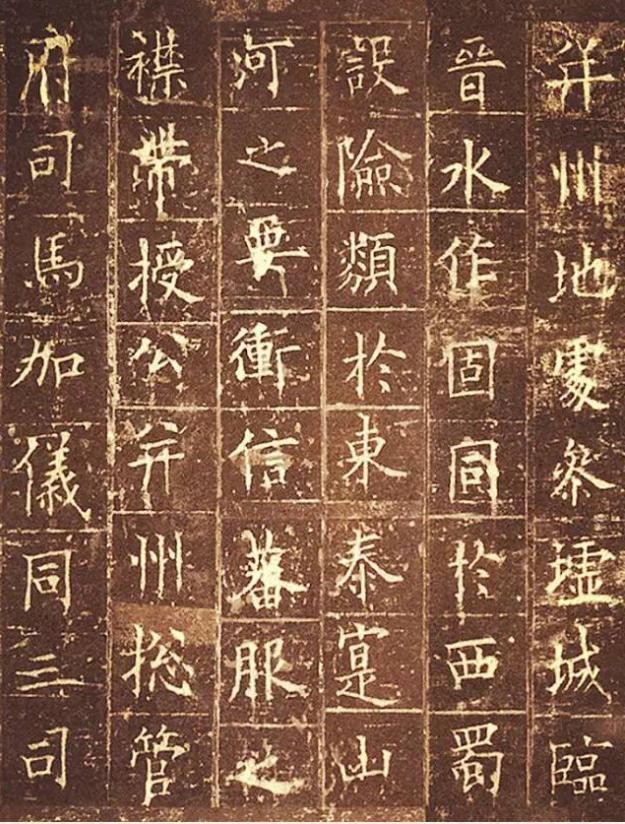 并州地處參墟城臨
晉水作固同於西蜀
設險類於東秦寔山
河之要衝信蕃服之
襟帶授公并州揔管
府司馬加儀同三司